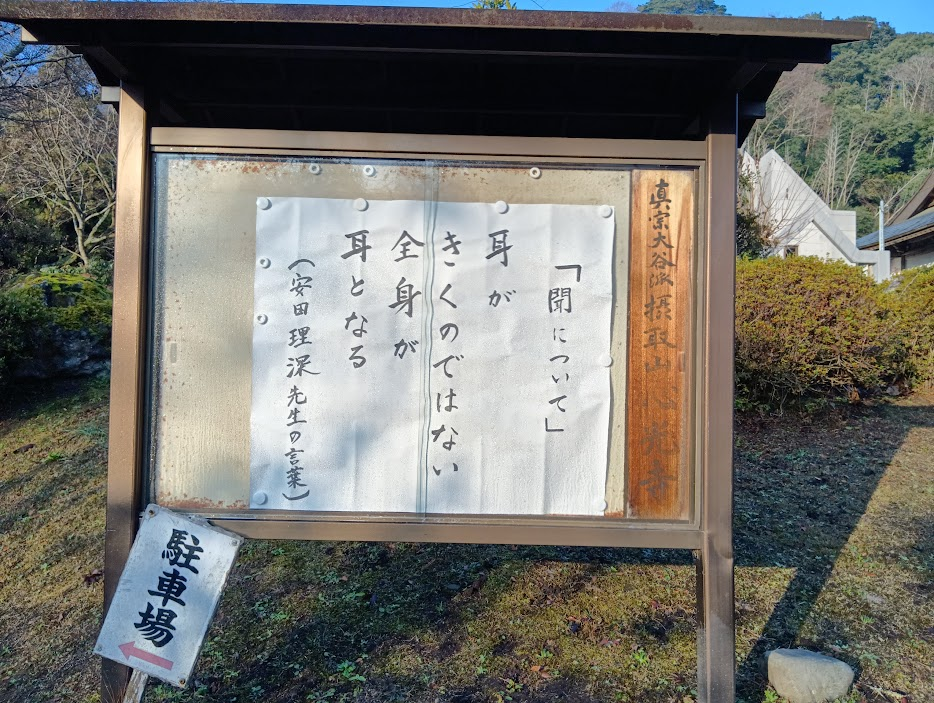 真宗大谷派 摂取山 光寺
「聞について」
耳が
きくのではない
全身が
耳となる
（安田理深先生の言葉）
駐車場